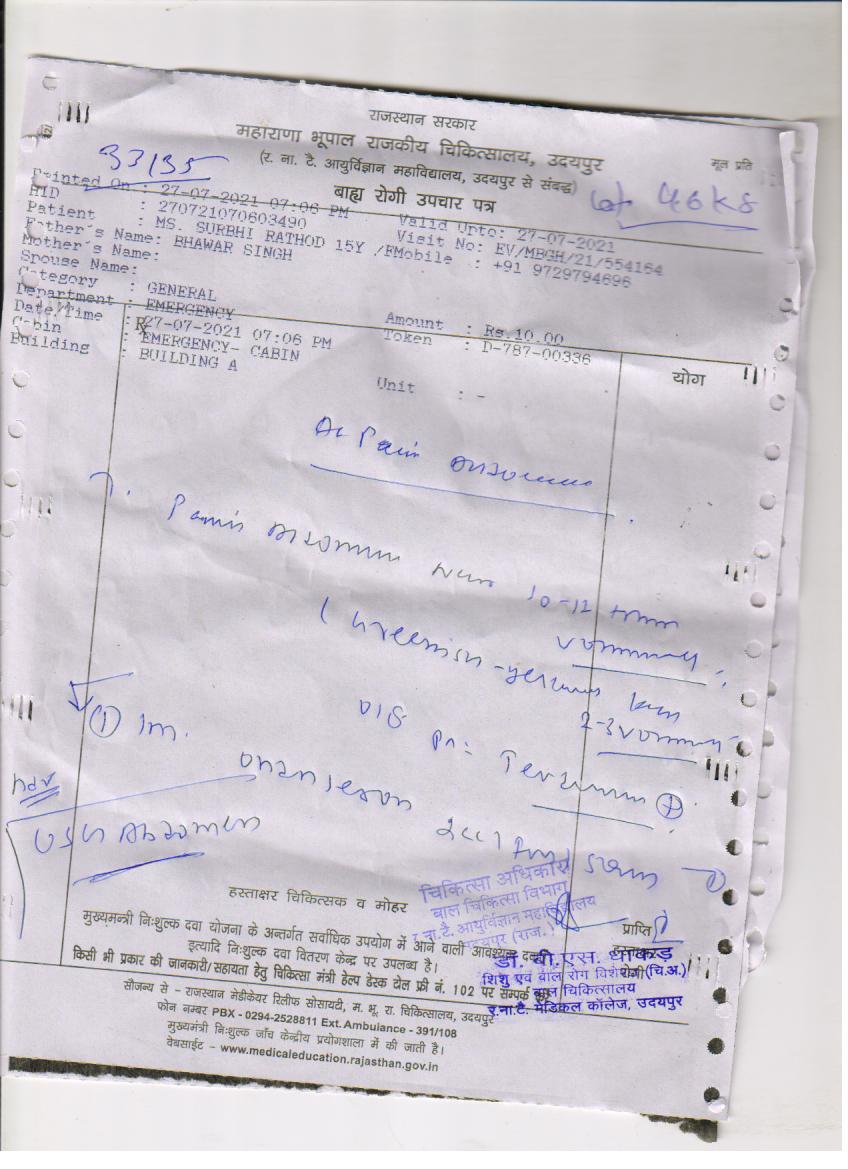 राजस्थान सरकार
महाराणा भूपाल राजकीय चिकित्सालय, उदयपुर
मूल प्रति
(र. ना. टै. आयुर्विज्ञान महाविद्यालय, उदयपुर से संबद्ध)
33135
बाह्य रोगी उपचार पत्र
46KG
Printed On : 27-07-2021 07:06 PM Valid Upto: 27-07-2021
HID : 270721070603490 Visit No: EV/MBGH/21/554164
Patient : MS. SURBHI RATHOD 15Y /F Mobile : +91 9729794696
Father's Name: BHAWAR SINGH
Mother's Name:
Spouse Name:
Category : GENERAL
Department : EMERGENCY Amount : Rs.10.00
Date/Time : 27-07-2021 07:06 PM Token : D-787-00336
Cabin : EMERGENCY- CABIN
Building : BUILDING A
Unit : -
Rx
योग
Ac Pain Abdomen
Pain Abdomen
10-12
vomiting
(Greenish-yellow
2-3 vomiting
O/E
P/A:
① Im.
Ondansetron
2cc
USG Abdomen
हस्ताक्षर चिकित्सक व मोहर
चिकित्सा अधिकारी
बाल चिकित्सा विभाग
र.ना.टै. आयुर्विज्ञान महाविद्यालय
उदयपुर (राज.)
प्राप्ति
मुख्यमन्त्री निःशुल्क दवा योजना के अन्तर्गत सर्वाधिक उपयोग में आने वाली आवश्यक
इत्यादि निःशुल्क दवा वितरण केन्द्र पर उपलब्ध है।
किसी भी प्रकार की जानकारी/सहायता हेतु चिकित्सा मंत्री हेल्प डेस्क टोल फ्री नं. 102 पर सम्पर्क
डॉ. बी.एस. धाकड़
शिशु एवं बाल रोग विशेषज्ञ
बाल चिकित्सालय
र.ना.टै. मेडिकल कॉलेज, उदयपुर
सौजन्य से - राजस्थान मेडीकेयर रिलीफ सोसायटी, म. भू. रा. चिकित्सालय, उदयपुर
फोन नम्बर PBX - 0294-2528811 Ext. Ambulance - 391/108
मुख्यमन्त्री निःशुल्क जाँच केन्द्रीय प्रयोगशाला में की जाती है।
वेबसाईट - www.medicaleducation.rajasthan.gov.in